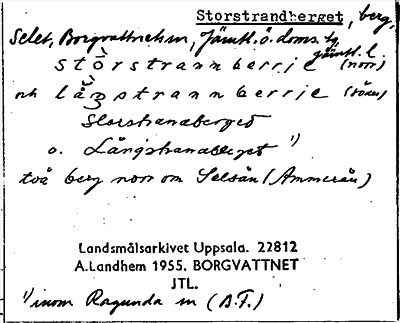 Storstrandberget, berg,
Selet, Borgvattnets sn, Jämtl. ö. doms. tg
jämtl. l.
stòrstrannberrje (norr)
och lå̀ŋstrannberrje (söder)
Storstranaberget
o. Långstranaberget 1)
två berg norr om Selsån (Ammerån)
Landsmålsarkivet Uppsala. 22812
A.Landhem 1955. BORGVATTNET
JTL.
1) inom Ragunda sn (B.F.)